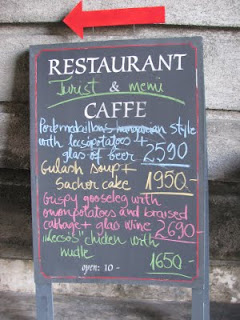 RESTAURANT
Turist & menü
CAFFE
Porkmedaillons hungarian style
with lecsópotatoes +
glas of beer 2590
Gulash soup +
Sacher cake 1950.-
Crispy gooseleg with
onionpotatoes and braised
cabbage + glas wine 2690.-
"Lecsós" chicken with
nudle 1650.-
open: 10 -